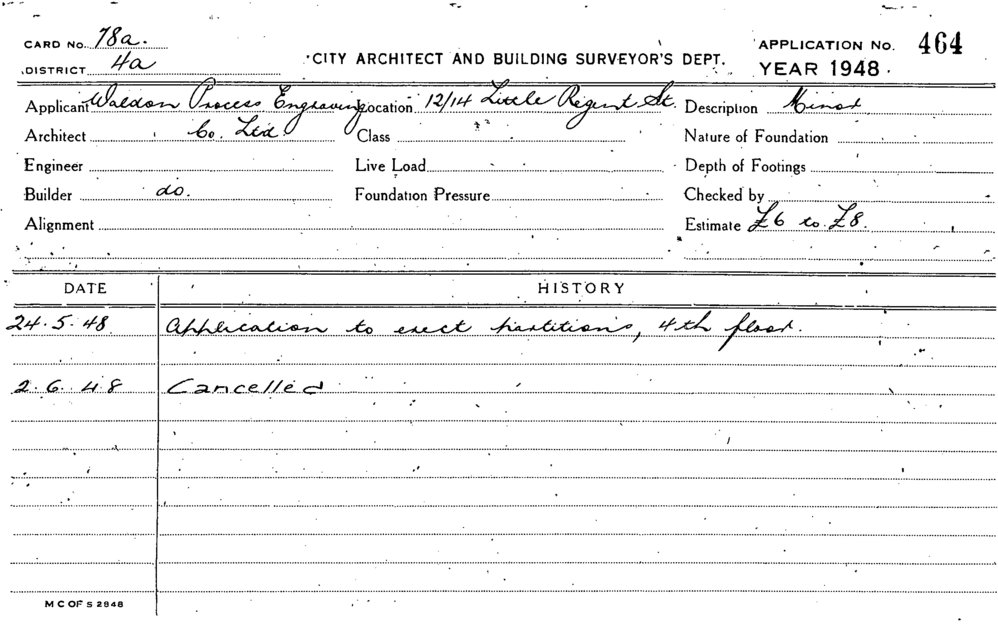 CARD No. 78a.
DISTRICT 4a
CITY ARCHITECT AND BUILDING SURVEYOR'S DEPT.
APPLICATION No. 464
YEAR 1948
Applicant Waldon Process Engraving Location 12/14 Little Regent St. Description Minor
Architect Co. Ltd. Class Nature of Foundation
Engineer Live Load Depth of Footings
Builder do. Foundation Pressure Checked by
Alignment Estimate £6 to £8.
DATE HISTORY
24.5.48 Application to erect partitions, 4th floor.
2.6.48 Cancelled
M C OF S 2848